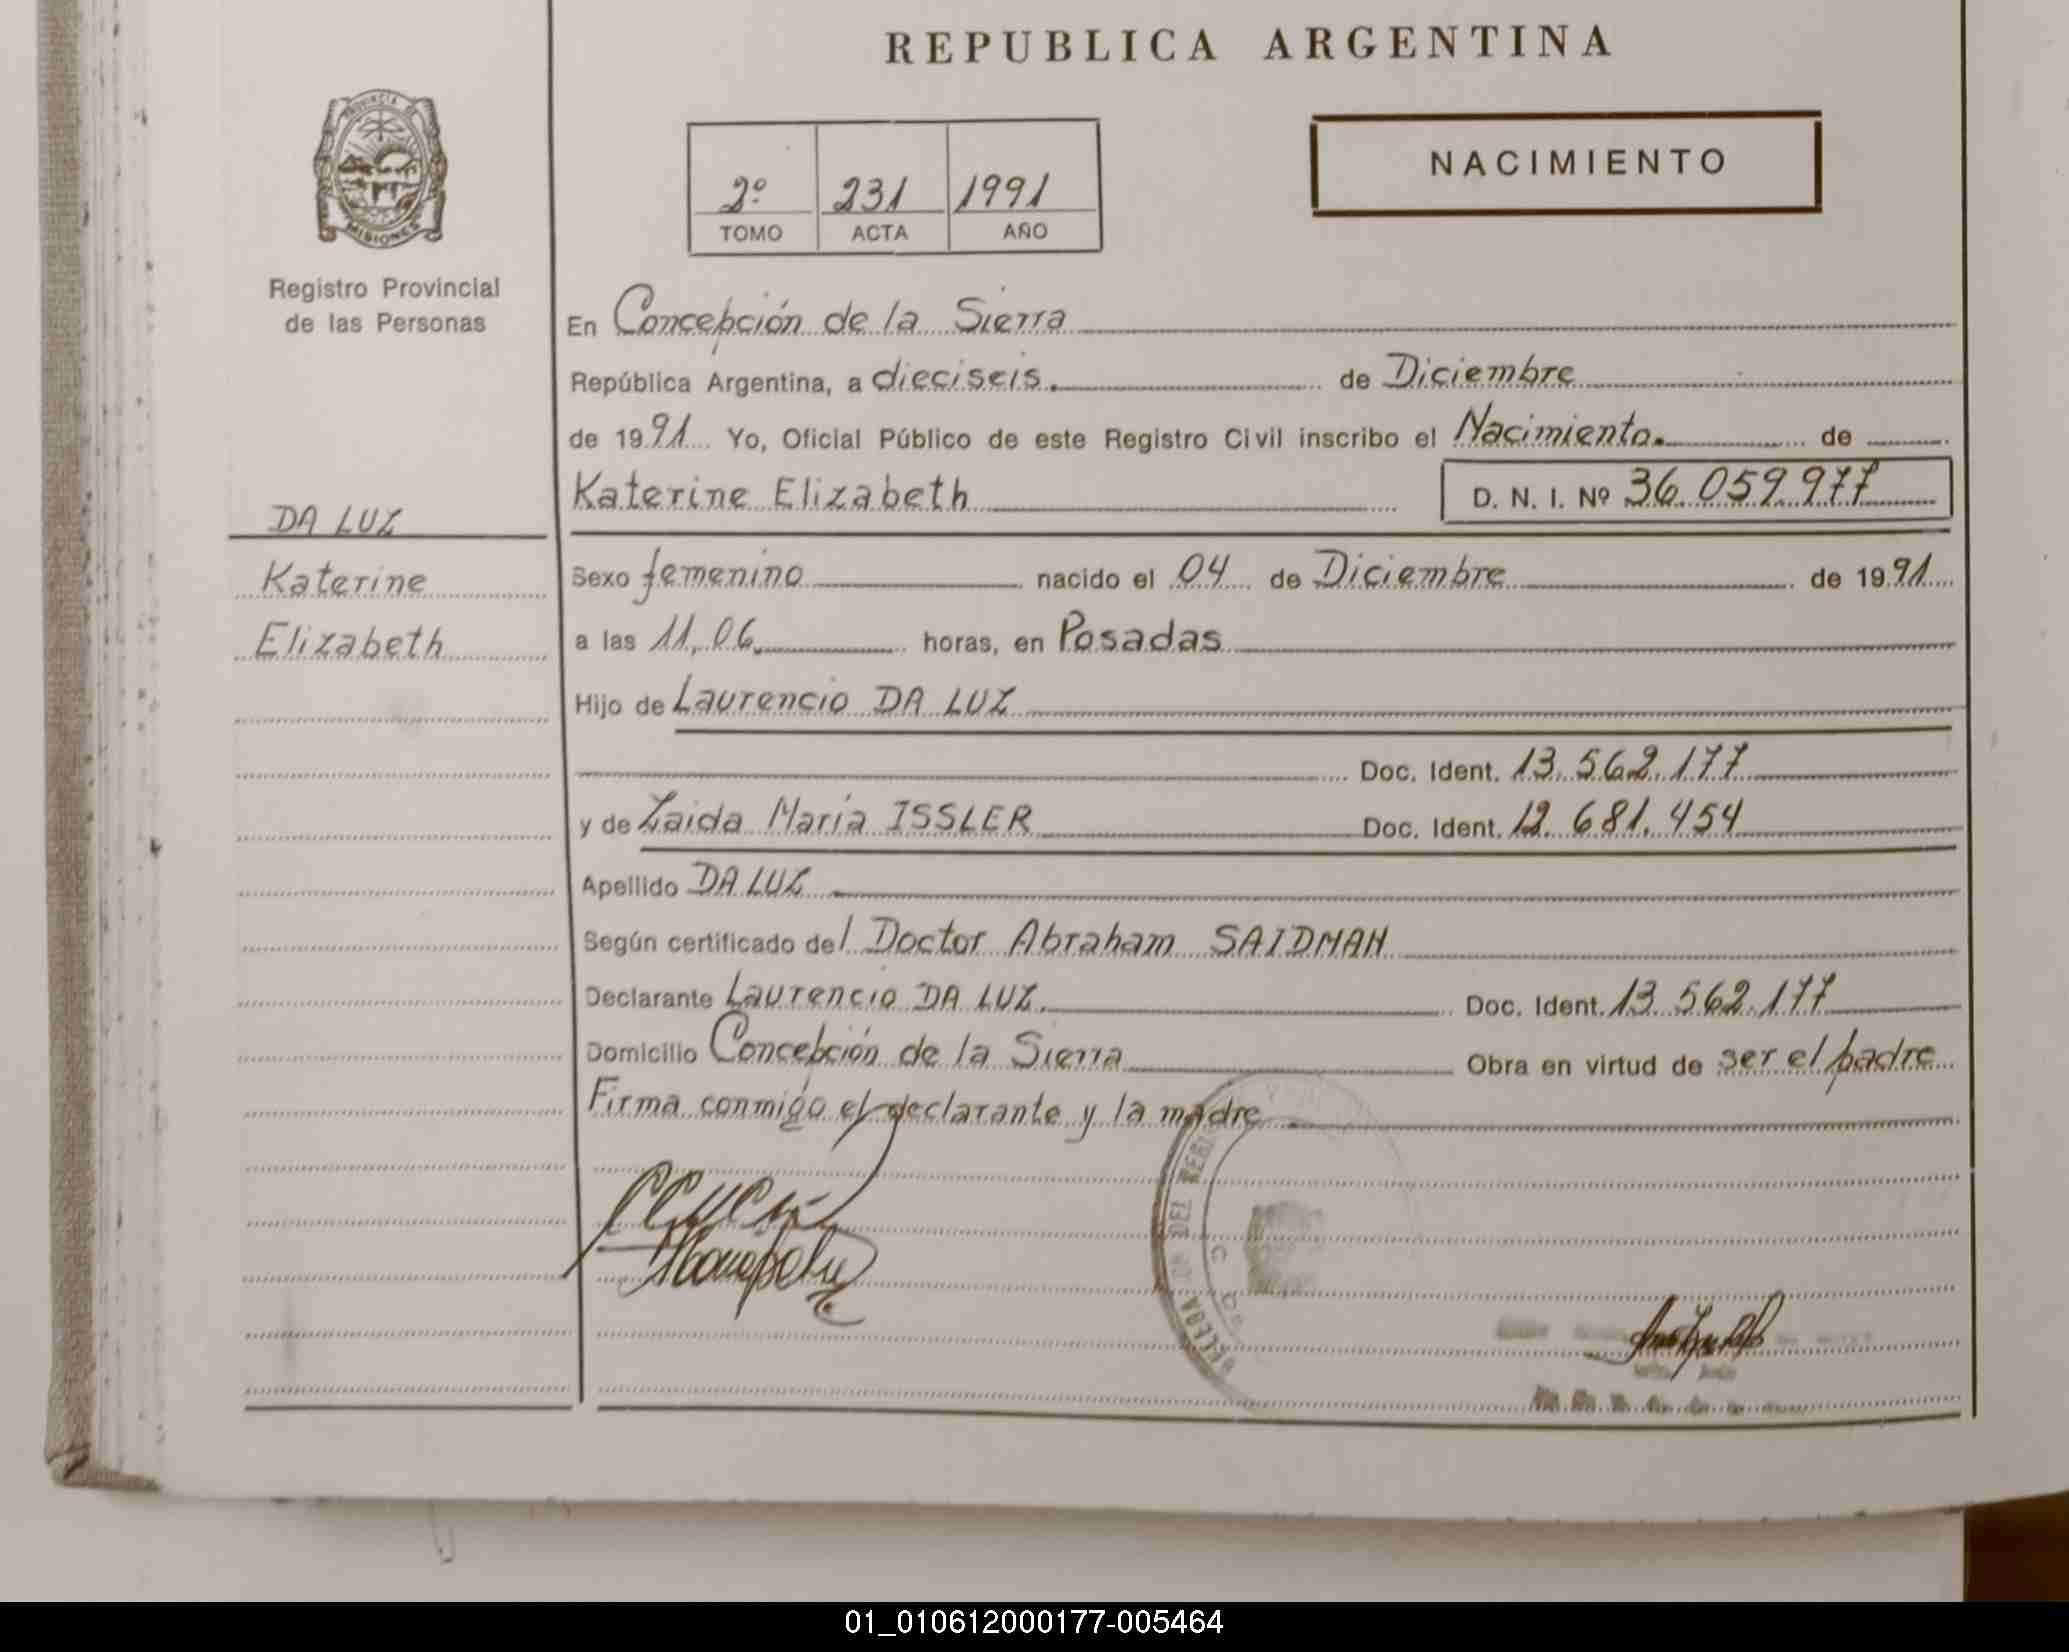 REPUBLICA ARGENTINA
PROVINCIA DE
MISIONES
Registro Provincial
de las Personas
2º 231 1991
TOMO ACTA AÑO
NACIMIENTO
En Concepción de la Sierra
República Argentina, a dieciseis. de Diciembre
de 1991 Yo, Oficial Público de este Registro Civil inscribo el Nacimiento. de
Katerine Elizabeth D. N. I. Nº 36.059.977
DA LUZ
Katerine
Elizabeth
Sexo femenino nacido el 04 de Diciembre de 1991
a las 11,06 horas, en Posadas
Hijo de Laurencio DA LUZ
Doc. Ident. 13.562.177
y de Zaida María ISSLER Doc. Ident. 12.681.454
Apellido DA LUZ
Según certificado del Doctor Abraham SAIDMAN
Declarante Laurencio DA LUZ. Doc. Ident. 13.562.177
Domicilio Concepción de la Sierra Obra en virtud de ser el padre
Firma conmigo el declarante y la madre
DEL
01_010612000177-005464